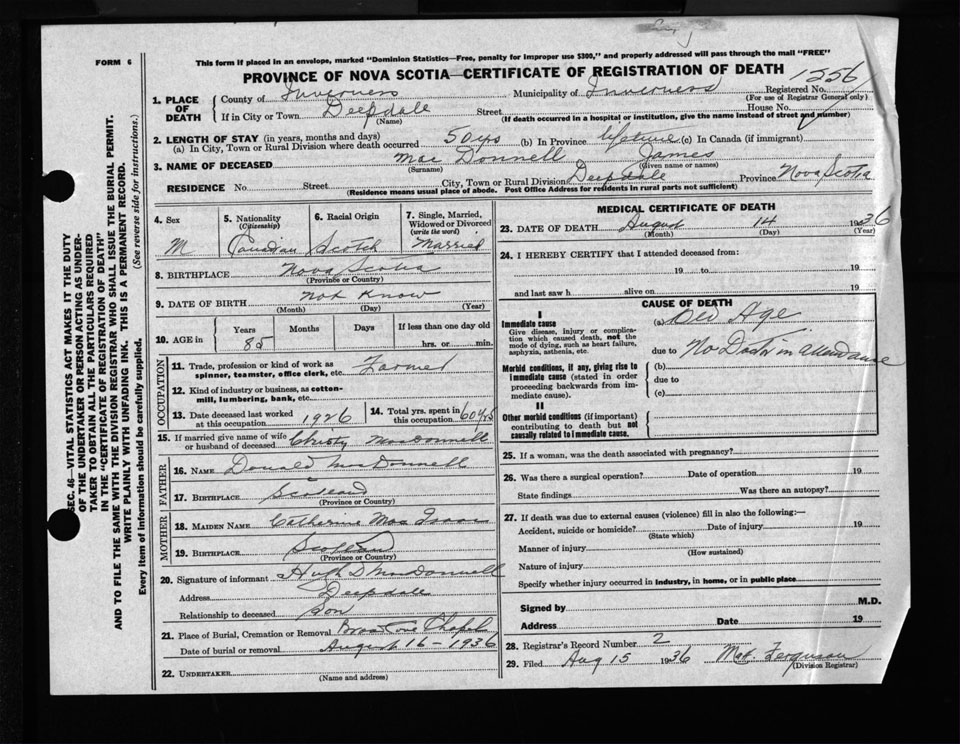 FORM 6
This form if placed in an envelope, marked "Dominion Statistics—Free, penalty for improper use $300," and properly addressed will pass through the mail "FREE"
PROVINCE OF NOVA SCOTIA—CERTIFICATE OF REGISTRATION OF DEATH
1256
Registered No.
(For use of Registrar General only)
1. PLACE OF DEATH
County of Inverness Municipality of Inverness
If in City or Town Deepdale Street House No.
(Name) (If death occurred in a hospital or institution, give the name instead of street and number)
2. LENGTH OF STAY (in years, months and days)
(a) In City, Town or Rural Division where death occurred 50 yrs (b) In Province lifetime (c) In Canada (if immigrant)
3. NAME OF DECEASED Mac Donnell James
(Surname) (Given name or names)
RESIDENCE No. Street City, Town or Rural Division Deepdale Province Nova Scotia
(Residence means usual place of abode. Post Office Address for residents in rural parts not sufficient)
SEC. 46—VITAL STATISTICS ACT MAKES IT THE DUTY
OF THE UNDERTAKER OR PERSON ACTING AS UNDER-
TAKER TO OBTAIN ALL THE PARTICULARS REQUIRED
IN THE "CERTIFICATE OF REGISTRATION OF DEATH"
AND TO FILE THE SAME WITH THE DIVISION REGISTRAR WHO SHALL ISSUE THE BURIAL PERMIT.
WRITE PLAINLY WITH UNFADING INK. THIS IS A PERMANENT RECORD.
Every item of Information should be carefully supplied. (See reverse side for instructions.)
4. Sex M
5. Nationality (Citizenship) Canadian
6. Racial Origin Scotch
7. Single, Married, Widowed or Divorced (write the word) Married
8. BIRTHPLACE Nova Scotia
(Province or Country)
9. DATE OF BIRTH Not Know
(Month) (Day) (Year)
10. AGE in Years Months Days If less than one day old
85 hrs. or min.
OCCUPATION
11. Trade, profession or kind of work as spinner, teamster, office clerk, etc. Farmer
12. Kind of industry or business, as cotton-mill, lumbering, bank, etc.
13. Date deceased last worked at this occupation 1926
14. Total yrs. spent in this occupation 60 yrs
15. If married give name of wife or husband of deceased Christy MacDonnell
FATHER
16. NAME Donald MacDonnell
17. BIRTHPLACE Scotland
(Province or Country)
MOTHER
18. MAIDEN NAME Catherine Mac Isaac
19. BIRTHPLACE Scotland
(Province or Country)
20. Signature of informant Hugh D MacDonnell
Address Deepdale
Relationship to deceased Son
21. Place of Burial, Cremation or Removal Chapel
Date of burial or removal August 16 - 1936
22. UNDERTAKER
(Name and address)
MEDICAL CERTIFICATE OF DEATH
23. DATE OF DEATH August 14 1936
(Month) (Day) (Year)
24. I HEREBY CERTIFY that I attended deceased from:
19 to 19
and last saw h alive on 19
CAUSE OF DEATH
I
Immediate cause
Give disease, injury or complica-
tion which caused death, not the
mode of dying, such as heart failure,
asphyxia, asthenia, etc.
(a) Old Age
due to No Doctor in attendance
Morbid conditions, if any, giving rise to
immediate cause (stated in order
proceeding backwards from im-
mediate cause).
(b)
due to
(c)
II
Other morbid conditions (if important)
contributing to death but not
causally related to immediate cause.
25. If a woman, was the death associated with pregnancy?
26. Was there a surgical operation? Date of operation 19
State findings Was there an autopsy?
27. If death was due to external causes (violence) fill in also the following:—
Accident, suicide or homicide? Date of injury 19
(State which)
Manner of injury
(How sustained)
Nature of injury
Specify whether injury occurred in industry, in home, or in public place
Signed by M.D.
Address Date 19
28. Registrar's Record Number 2
29. Filed Aug 15 1936 Ferguson
(Division Registrar)